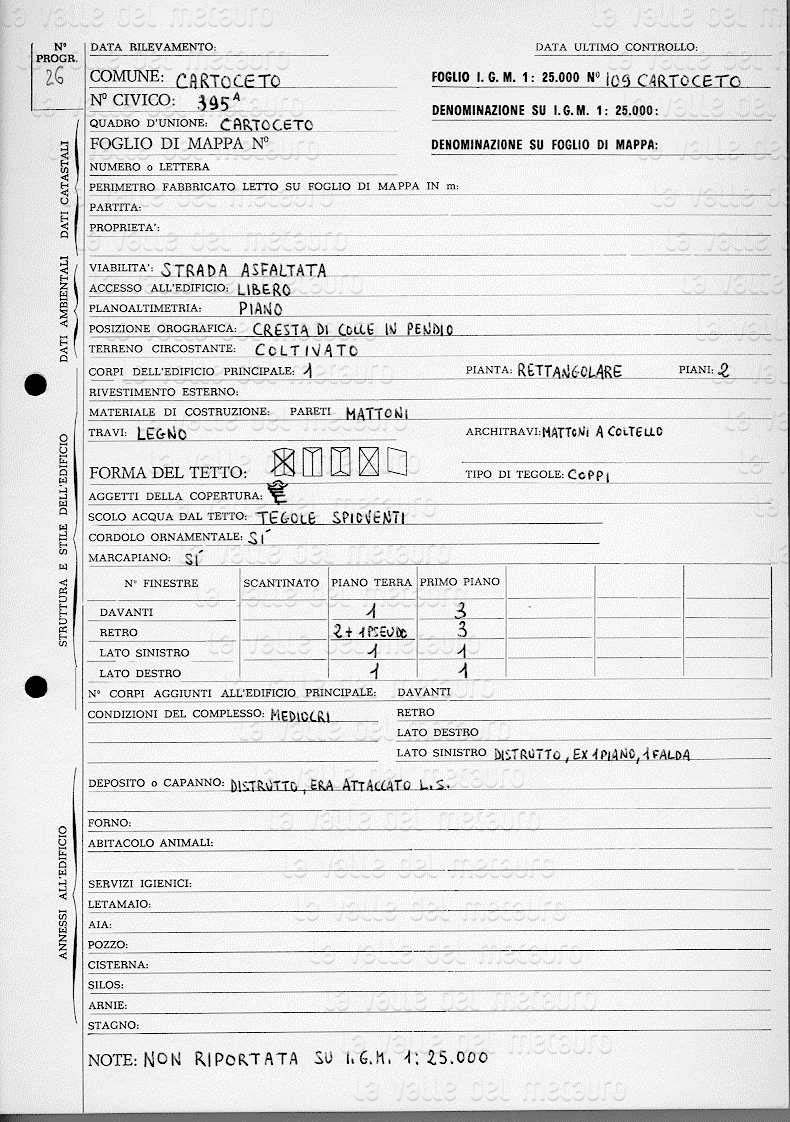 N° PROGR. 26
DATA RILEVAMENTO: DATA ULTIMO CONTROLLO:
COMUNE: CARTOCETO FOGLIO I. G. M. 1: 25.000 N° 109 CARTOCETO
N° CIVICO: 395A DENOMINAZIONE SU I. G. M. 1: 25.000:
QUADRO D'UNIONE: CARTOCETO
FOGLIO DI MAPPA N° DENOMINAZIONE SU FOGLIO DI MAPPA:
NUMERO o LETTERA
PERIMETRO FABBRICATO LETTO SU FOGLIO DI MAPPA IN m:
PARTITA:
PROPRIETA':
DATI CATASTALI
VIABILITA': STRADA ASFALTATA
ACCESSO ALL'EDIFICIO: LIBERO
PLANOALTIMETRIA: PIANO
POSIZIONE OROGRAFICA: CRESTA DI COLLE IN PENDIO
TERRENO CIRCOSTANTE: COLTIVATO
DATI AMBIENTALI
CORPI DELL'EDIFICIO PRINCIPALE: 1 PIANTA: RETTANGOLARE PIANI: 2
RIVESTIMENTO ESTERNO:
MATERIALE DI COSTRUZIONE: PARETI MATTONI
TRAVI: LEGNO ARCHITRAVI: MATTONI A COLTELLO
FORMA DEL TETTO: TIPO DI TEGOLE: COPPI
AGGETTI DELLA COPERTURA:
SCOLO ACQUA DAL TETTO: TEGOLE SPIOVENTI
CORDOLO ORNAMENTALE: SÍ
MARCAPIANO: SÍ
N° FINESTRE SCANTINATO PIANO TERRA PRIMO PIANO
DAVANTI 1 3
RETRO 2 + 1 PSEUDO 3
LATO SINISTRO 1 1
LATO DESTRO 1 1
STRUTTURA E STILE DELL'EDIFICIO
N° CORPI AGGIUNTI ALL'EDIFICIO PRINCIPALE: DAVANTI
CONDIZIONI DEL COMPLESSO: MEDIOCRI RETRO
LATO DESTRO
LATO SINISTRO DISTRUTTO, EX 1 PIANO, 1 FALDA
DEPOSITO o CAPANNO: DISTRUTTO, ERA ATTACCATO L.S.
FORNO:
ABITACOLO ANIMALI:
SERVIZI IGIENICI:
LETAMAIO:
AIA:
POZZO:
CISTERNA:
SILOS:
ARNIE:
STAGNO:
ANNESSI ALL'EDIFICIO
NOTE: NON RIPORTATA SU I.G.M. 1: 25.000
la valle del metauro